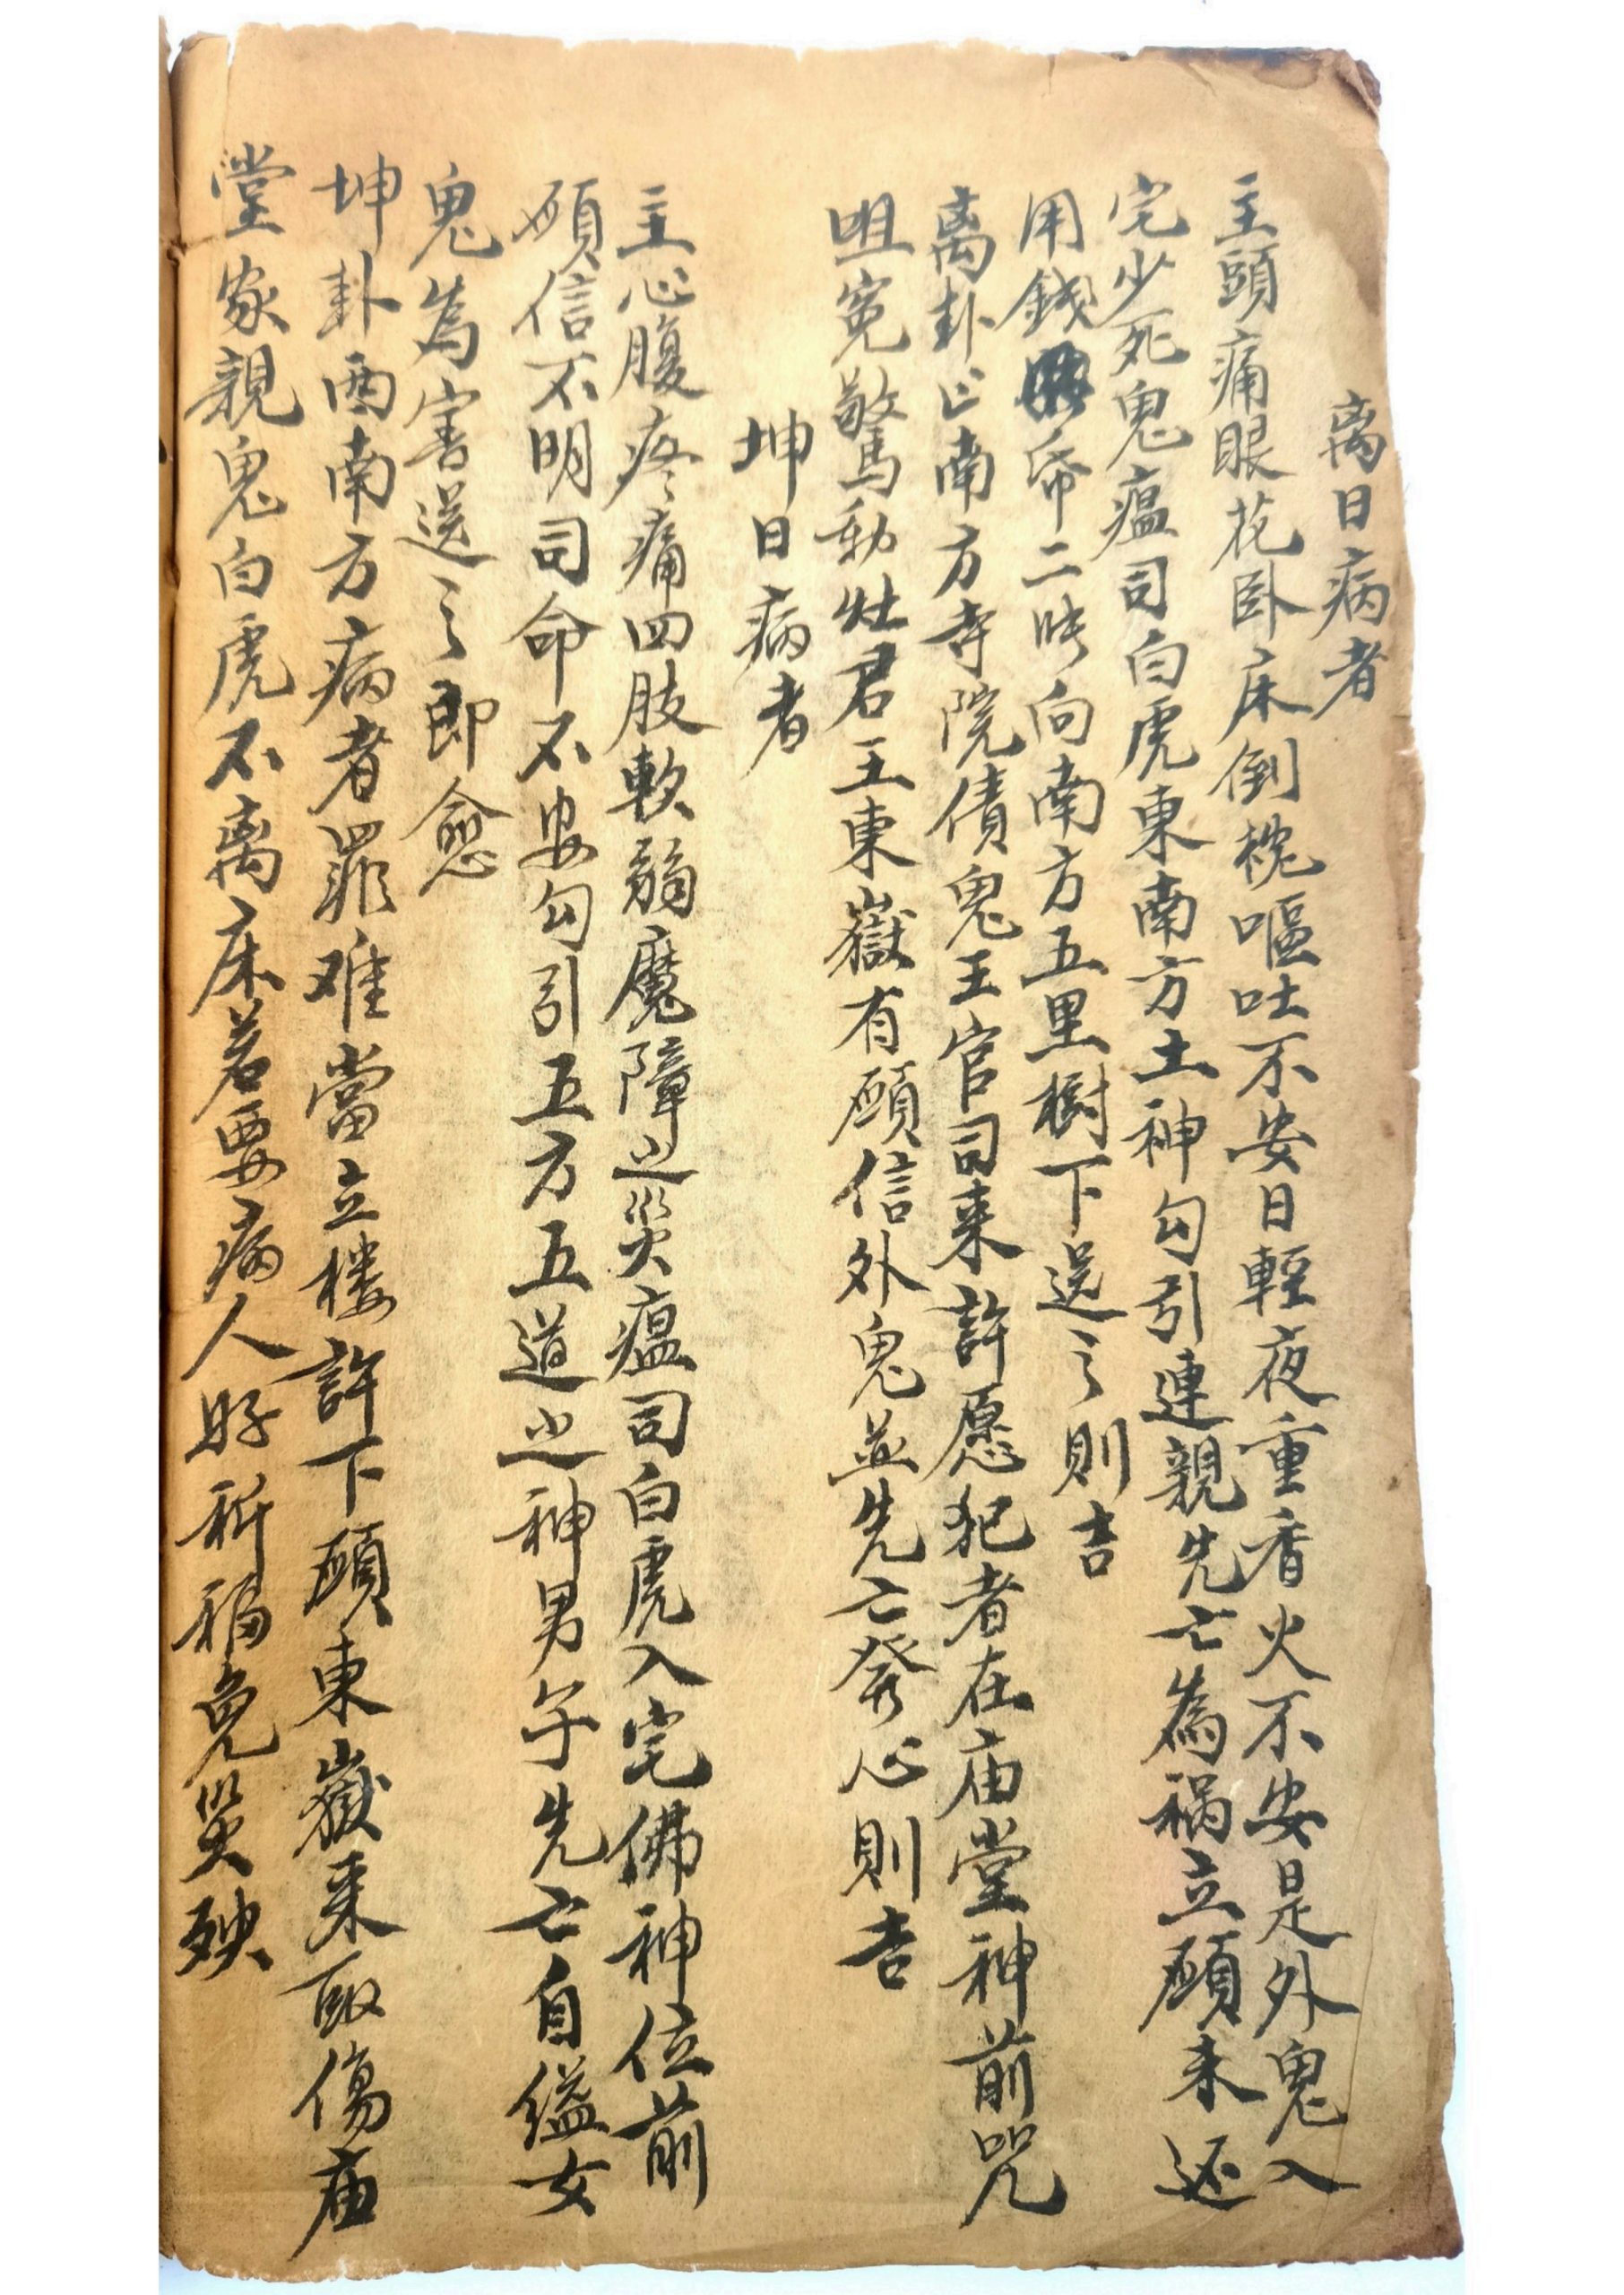 离日病者
主頭痛眼花卧床倒枕嘔吐不安日輕夜重香火不安是外鬼入
宅少死鬼瘟司白虎東南方土神勾引連親先亡為禍立願未还
用錢帋二吽向南方五里樹下送之則吉
离卦正南方寺院債鬼王官司来許愿犯者在庙堂神前咒
咀寃驚動灶君王東嶽有願信外鬼並先亡發心則吉
坤日病者
主心腹疼痛四肢軟弱魔障之災瘟司白虎入宅佛神位前
願信不明司命不安勾引五方五道之神男子先亡自縊女
鬼為害送之即愈
坤卦西南方病者罪难當立楼許下願東嶽来取傷庙
堂家親鬼白虎不离床若要病人好祈福免災殃